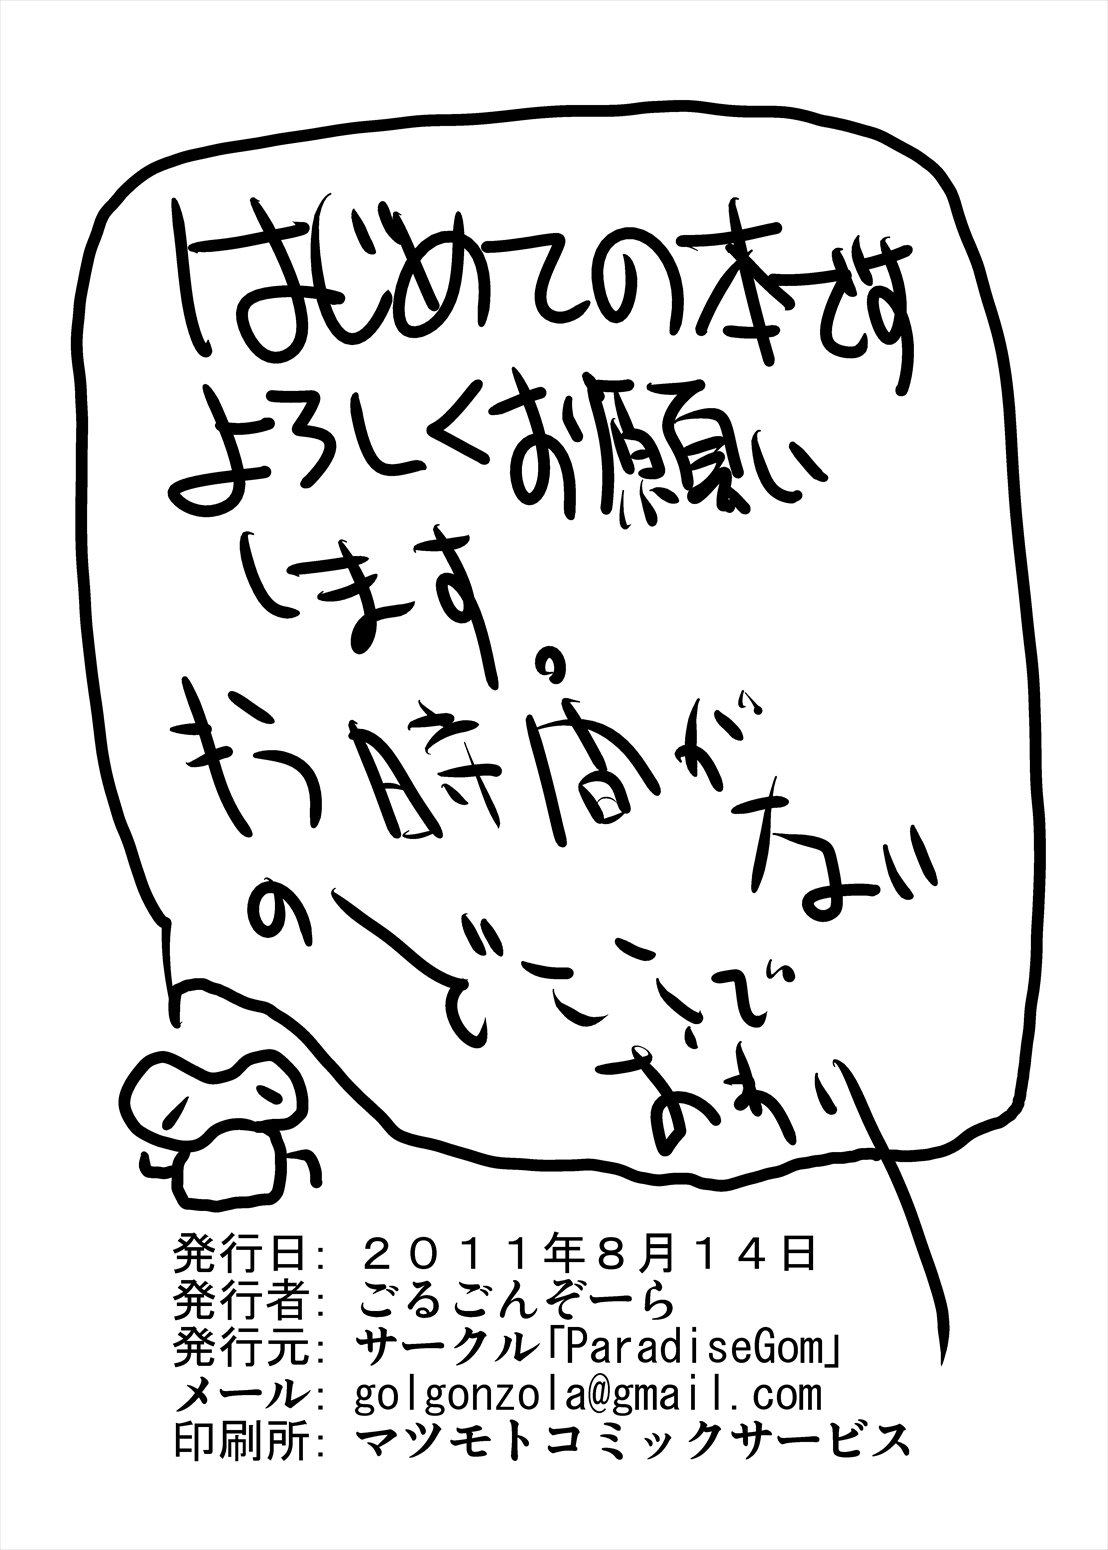 はじめての本です
よろしくお願い
します。
もう時間が
ない
のでここで
おわり
発行日: ２０１１年８月１４日
発行者: ごるごんぞーら
発行元: サークル「ParadiseGom」
メール: golgonzola@gmail.com
印刷所: マツモトコミックサービス